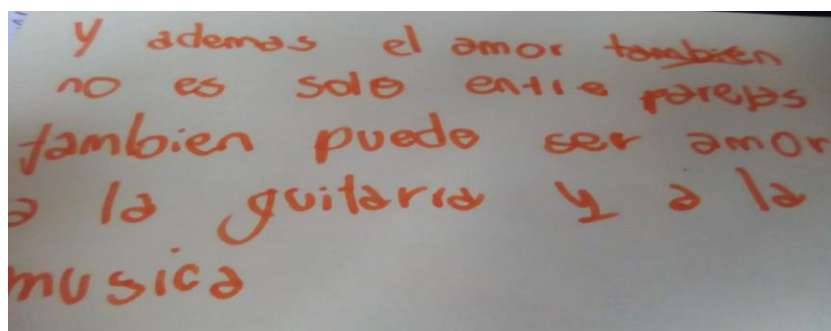 y ademas el amor tambien
no es solo entre parejas
tambien puede ser amor
a la guitarra y a la
musica